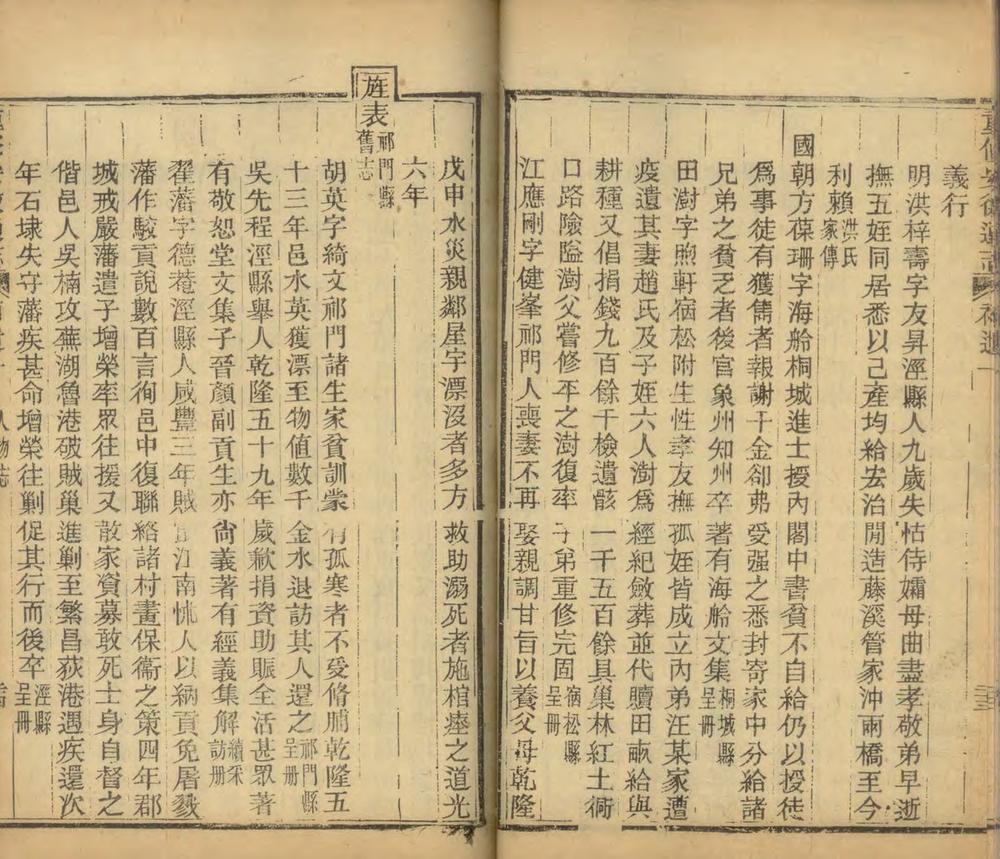 重修安徽通志 補遺
義行
明洪梓壽字友昇涇縣人九歲失怙侍孀母曲盡孝敬弟早逝
撫五姪同居悉以己產均給宏治間造藤溪管家沖兩橋至今
利賴洪氏家傳
國朝方葆珊字海舲桐城進士授內閣中書貧不自給仍以授徒
爲事徒有獲雋者報謝千金卻弗受强之悉封寄家中分給諸
兄弟之貧乏者後官象州知州卒著有海舲文集桐城縣呈冊
田澍字煦軒宿松附生性孝友撫孤姪皆成立內弟汪某家遭
疫遺其妻趙氏及子姪六人澍爲經紀斂葬並代贖田畝給與
耕種又倡捐錢九百餘千檢遺骸一千五百餘具巢林紅土衕
口路險隘澍父嘗修平之澍復率子弟重修完固宿松縣呈冊
江應剛字健峯祁門人喪妻不再娶親調甘旨以養父母乾隆
戊申水災親鄰屋宇漂沒者多方救助溺死者施棺瘞之道光
六年
旌表祁門縣舊志
胡英字綺文祁門諸生家貧訓蒙有孤寒者不受脩脯乾隆五
十三年邑水英獲漂至物值數千金水退訪其人還之祁門縣呈册
吳先程涇縣舉人乾隆五十九年歲歉捐資助賑全活甚眾著
有敬恕堂文集子晉顏副貢生亦尙義著有經義集解續采訪册
翟藩字德菴涇縣人咸豐三年賊下江南怵人以納貢免屠戮
藩作駮貢說數百言徇邑中復聯絡諸村畫保衞之策四年郡
城戒嚴藩遣子增榮率眾往援又散家資募敢死士身自督之
偕邑人吳楠攻蕪湖魯港破賊巢進剿至繁昌荻港遇疾還次
年石埭失守藩疾甚命增榮往剿促其行而後卒涇縣呈冊
人物志